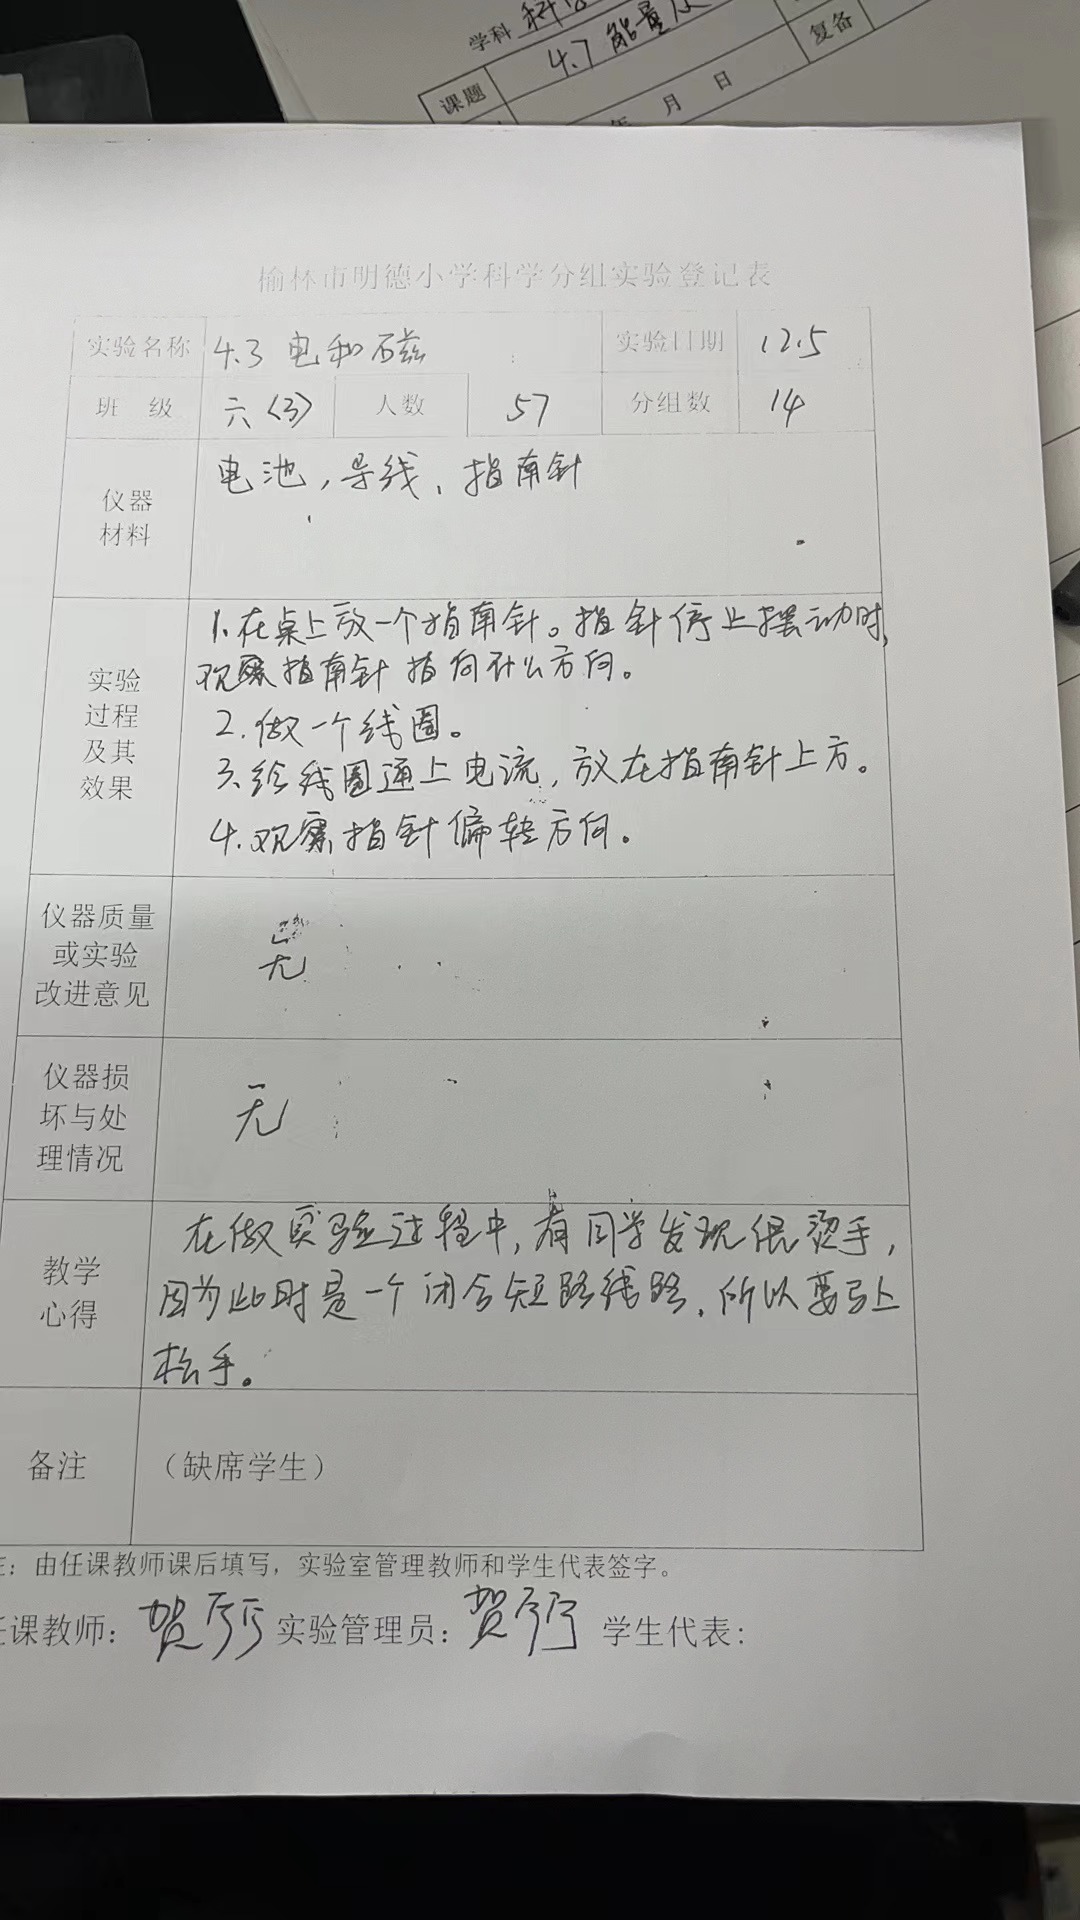 学科 科
课题 4.7 能量
复备
年 月 日
榆林市明德小学科学分组实验登记表
实验名称 4.3 电和磁 实验日期 12.5
班 级 六(3) 人数 57 分组数 14
仪器
材料
电池,导线、指南针
实验
过程
及其
效果
1.在桌上放一个指南针。指针停止摆动时,
观察指南针指向什么方向。
2.做一个线圈。
3.给线圈通上电流,放在指南针上方。
4.观察指针偏转方向。
仪器质量
或实验
改进意见
无
仪器损
坏与处
理情况
无
教学
心得
在做实验过程中,有同学发现很烫手,
因为此时是一个闭合短路线路,所以要马上
松手。
备注 (缺席学生)
注:由任课教师课后填写,实验室管理教师和学生代表签字。
任课教师: 贺 实验管理员: 贺 学生代表: